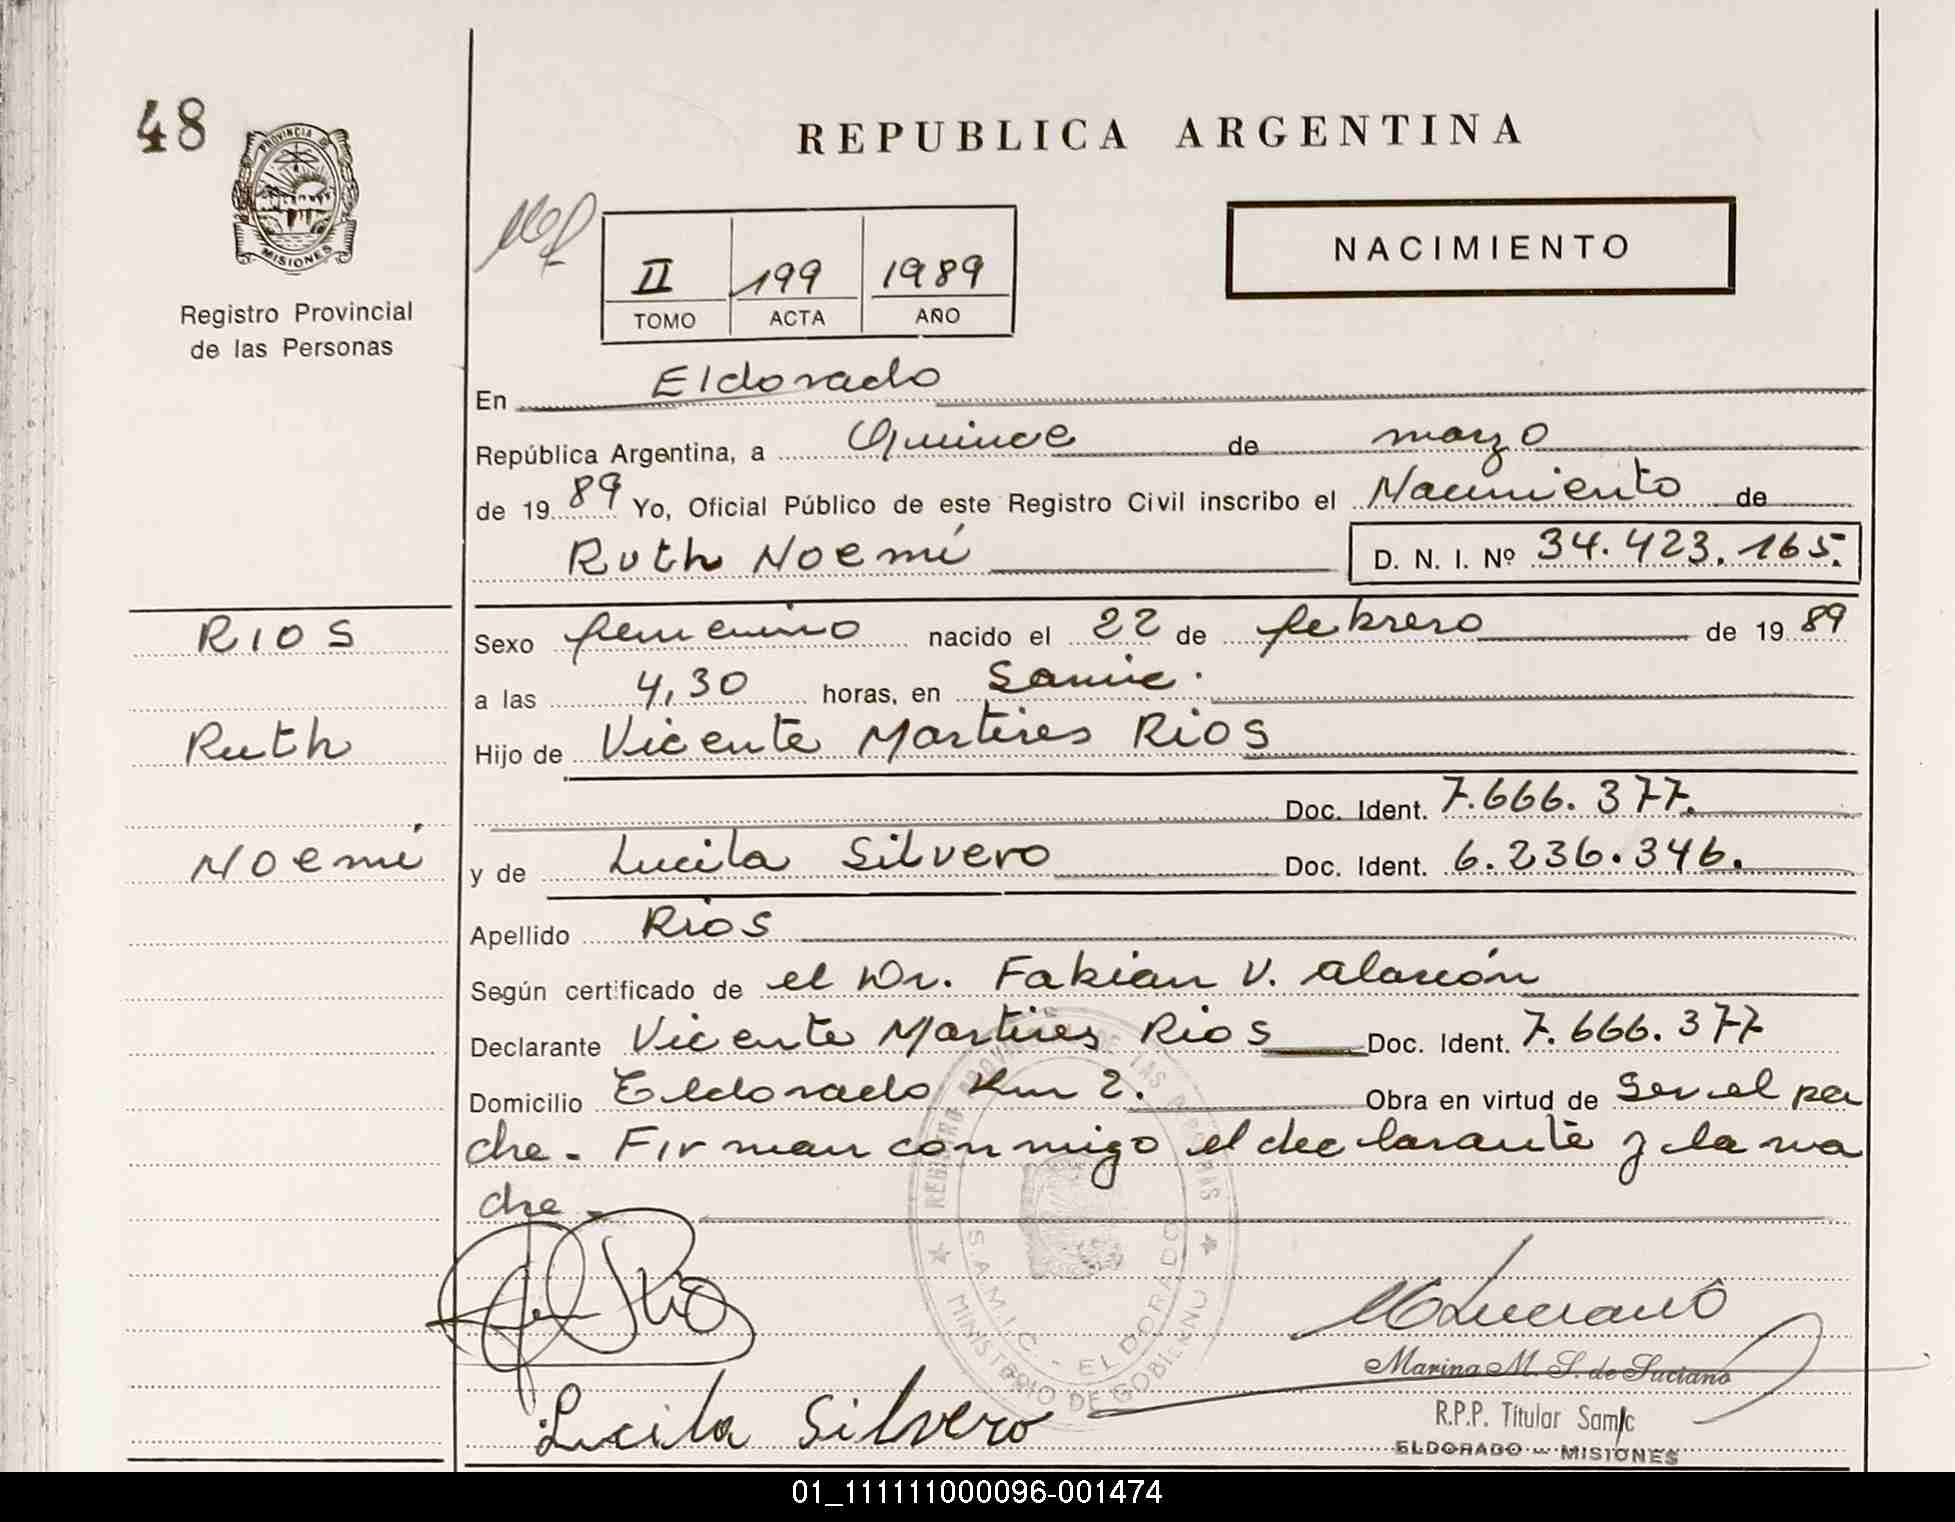 48
PROVINCIA DE
MISIONES
Registro Provincial
de las Personas
REPUBLICA ARGENTINA
NACIMIENTO
II 199 1989
TOMO ACTA AÑO
En Eldorado
República Argentina, a Quince de marzo
de 1989 Yo, Oficial Público de este Registro Civil inscribo el Nacimiento de
Ruth Noemí D. N. I. Nº 34.423.165.
RIOS
Ruth
Noemí
Sexo femenino nacido el 22 de febrero de 1989
a las 4,30 horas, en Samic.
Hijo de Vicente Martires Rios
Doc. Ident. 7.666.377.
y de Lucila Silvero Doc. Ident. 6.236.346.
Apellido Rios
Según certificado de el Dr. Fabian V. Alarcón
Declarante Vicente Martires Rios Doc. Ident. 7.666.377
Domicilio Eldorado Km 2. Obra en virtud de Ser el pa
dre. Firman conmigo el declarante y la ma
dre.
REGISTRO PROVINCIAL DE LAS PERSONAS
S.A.M.I.C. - ELDORADO
MINISTERIO DE GOBIERNO
Lucila Silvero
Marina M. S. de Luciano
R.P.P. Titular Samic
ELDORADO - MISIONES
01_111111000096-001474